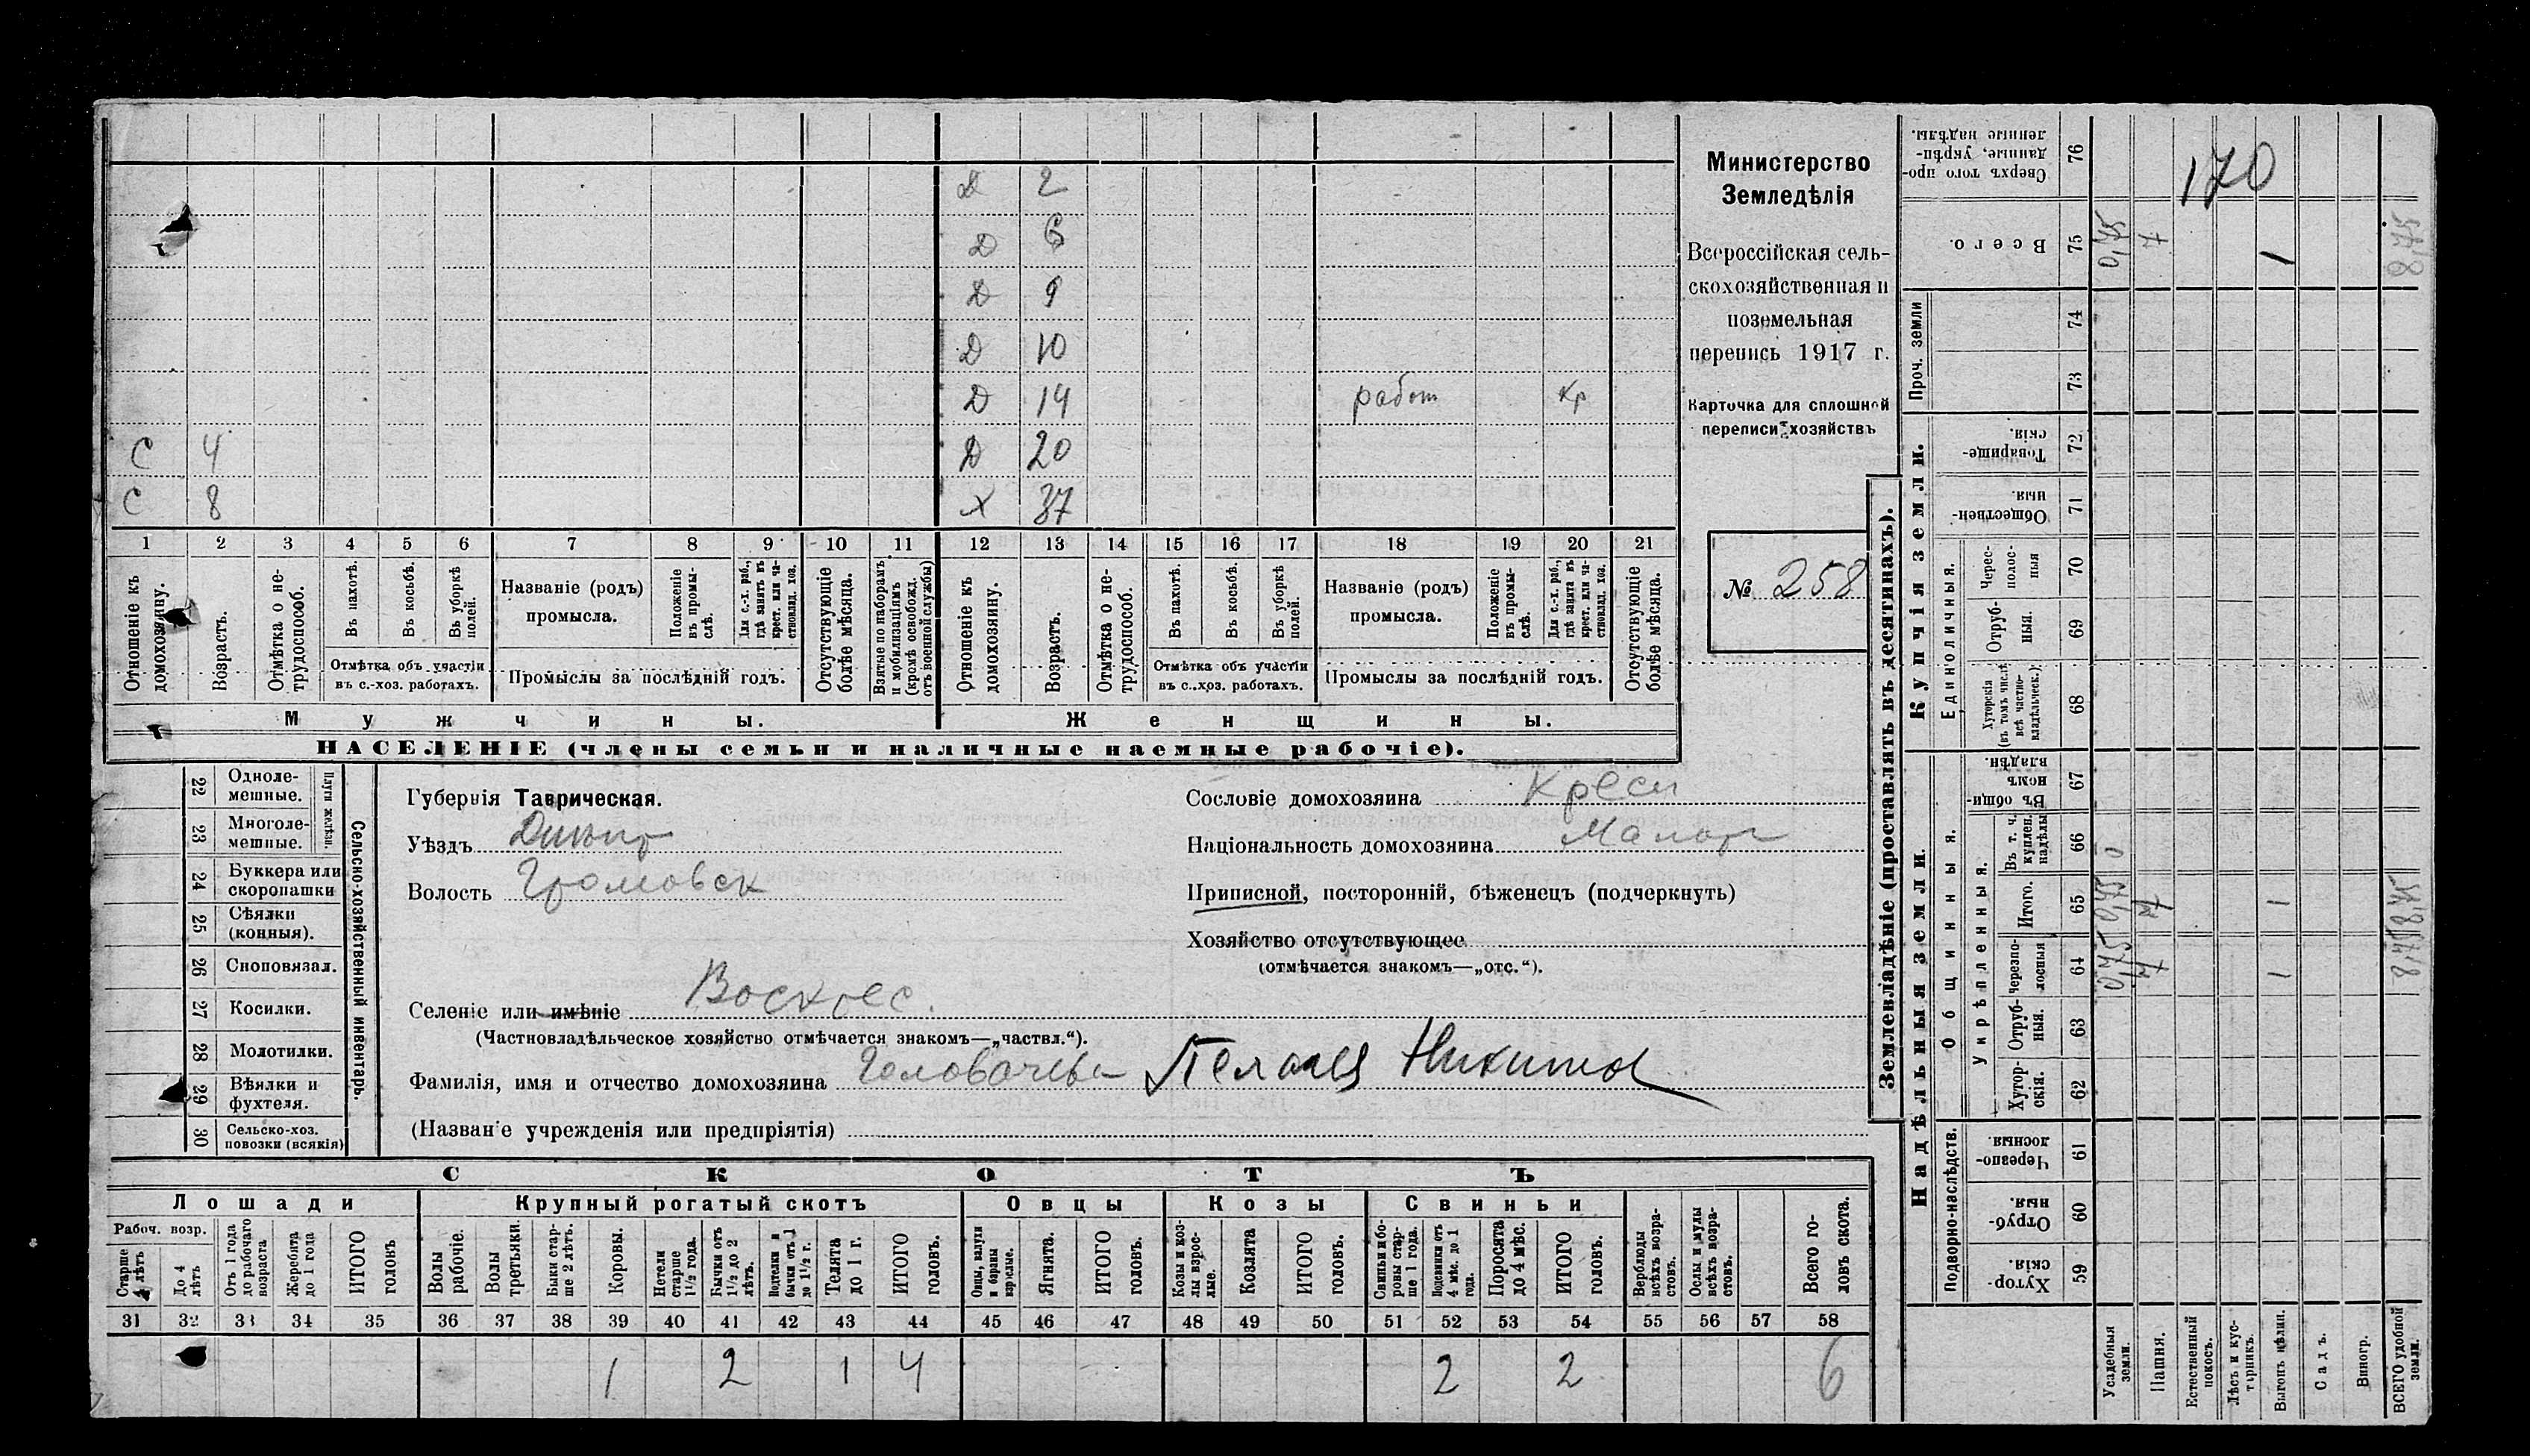 Д 2
Д 6
Д 9
Д 10
Д 14 работ Кр
С 4 Д 20
С 8 Х 37
1 2 3 4 5 6 7 8 9 10 11 12 13 14 15 16 17 18 19 20 21
Отношеніе къ домохозяину.
Возрастъ.
Отмѣтка о не-трудоспособ.
Въ пахотѣ.
Въ косьбѣ.
Въ уборкѣ полей.
Отмѣтка объ участіи
въ с.-хоз. работахъ.
Названіе (родъ)
промысла.
Положеніе въ промы-слѣ.
Для с.-х. раб., гдѣ занятъ въ крест. или ча-стновлад. хоз.
Промыслы за послѣдній годъ.
Отсутствующіе болѣе мѣсяца.
Взятые по наборамъ и мобилизаціямъ (кромѣ освобожд. отъ военной службы)
Отношеніе къ домохозяину.
Возрастъ.
Отмѣтка о не-трудоспособ.
Въ пахотѣ.
Въ косьбѣ.
Въ уборкѣ полей.
Отмѣтка объ участіи
въ с.-хоз. работахъ.
Названіе (родъ)
промысла.
Положеніе въ промы-слѣ.
Для с.-х. раб., гдѣ занята въ крест. или ча-стновлад. хоз.
Промыслы за послѣдній годъ.
Отсутствующіе болѣе мѣсяца.
Мужчины. Женщины.
НАСЕЛЕНІЕ (члены семьи и наличные наемные рабочіе).
Министерство
Земледѣлія
Всероссійская сель-
скохозяйственная и
поземельная
перепись 1917 г.
Карточка для сплошной
переписи хозяйствъ
№ 258
22 Одноле-мешные.
23 Многоле-мешные.
Плуги желѣзн.
24 Буккера или скоропашки
25 Сѣялки (конныя).
26 Сноповязал.
27 Косилки.
28 Молотилки.
29 Вѣялки и фухтеля.
30 Сельско-хоз. повозки (всякія)
Сельско-хозяйственный инвентарь.
Губернія Таврическая.
Уѣздъ Днѣпр
Волость Громовск
Селеніе или имѣніе Воскрес.
(Частновладѣльческое хозяйство отмѣчается знакомъ—„частвл.“).
Фамилія, имя и отчество домохозяина Головачева Пелагея Никит
(Названіе учрежденія или предпріятія)
Сословіе домохозяина Крест
Національность домохозяина Малор
Приписной, посторонній, бѣженецъ (подчеркнуть)
Хозяйство отсутствующее
(отмѣчается знакомъ—„отс.“).
СКОТЪ
Лошади Крупный рогатый скотъ Овцы Козы Свиньи
Рабоч. возр.
Старше 4 лѣтъ
До 4 лѣтъ
Отъ 1 года до рабочаго возраста
Жеребята до 1 года
ИТОГО головъ
Волы рабочіе.
Волы третьяки.
Быки стар-ше 2 лѣтъ.
Коровы.
Нетели старше 1½ года.
Бычки отъ 1½ до 2 лѣтъ.
Телята до 1 г.
ИТОГО головъ.
Овцы, валухи и бараны взрослые.
Ягнята.
ИТОГО головъ.
Козы и коз-лы взрос-лые.
Козлята
ИТОГО головъ.
Свиньи и бо-ровы стар-ше 1 года.
Подсвинки отъ 4 мѣс. до 1 года.
Поросята до 4 мѣс.
ИТОГО головъ.
Верблюды всѣхъ возра-стовъ.
Ослы и мулы всѣхъ возра-стовъ.
Всего го-ловъ скота.
31 32 33 34 35 36 37 38 39 40 41 42 43 44 45 46 47 48 49 50 51 52 53 54 55 56 57 58
1 2 1 4 2 2 6
Землевладѣніе (проставлять въ десятинахъ).
Купчія земли.
Надѣльныя земли.
Сверхъ того про-данные, укрѣп-ленные надѣлы. 76
170
Всего. 75
0,75 7 1 8,75
Проч. земли
74
73
Товарище-скія. 72
Обществен-ныя. 71
Единоличныя.
Черес-полос-ныя 70
Отруб-ныя. 69
Хуторскія (въ томъ числѣ всѣ частно-владѣльческ.) 68
Общинныя.
Въ общи-номъ владѣн. 67
Укрѣпленныя.
Въ т. ч. куплен. надѣлы 66
Итого. 65
0,75 7 1 8,75
черезпо-лосныя 64
0,75 7 1 8,75
Отруб-ныя. 63
Хутор-скія. 62
Подворно-наслѣдств.
Черезпо-лосныя 61
Отруб-ныя. 60
Хутор-скія. 59
Усадебныя земли.
Пашня.
Естественный покосъ.
Лѣсъ и кус-тарникъ.
Выгонъ цѣлин.
Садъ.
Виногр.
ВСЕГО удобной земли.